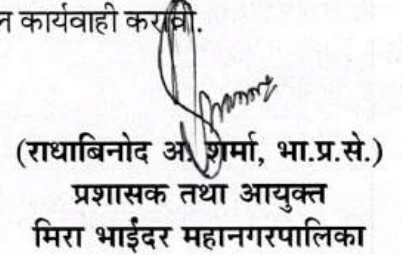 न कार्यवाही करावी.
(राधाबिनोद अ. शर्मा, भा.प्र.से.)
प्रशासक तथा आयुक्त
मिरा भाईंदर महानगरपालिका